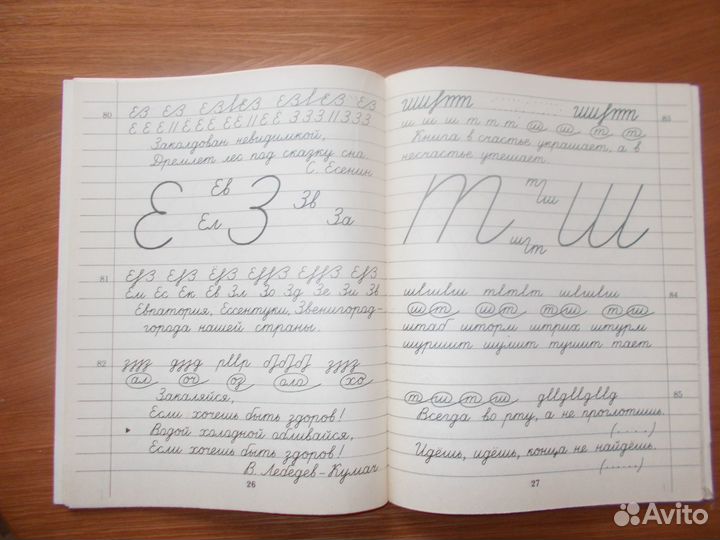 80
ЕЗ ЕЗ ЕЗЕЗ ЕЗЕЗ ЕЗ
Е Е Е II Е Е Е Е Е II Е Е З З З II З З З
Заколдован невидимкой,
Дремлет лес под сказку сна.
С. Есенин
Е Ев Ел З Зв За
81
ЕЗ ЕЗ ЕЗ ЕЗ ЕЗ ЕЗ
Ем Ес Ек Ев Зл Зо Зд Зе Зи Зв
Евпатория, Ессентуки, Звенигород-
города нашей страны.
82
ал ог оз ала хо
Закаляйся,
Если хочешь быть здоров!
Водой холодной обливайся,
Если хочешь быть здоров!
В. Лебедев-Кумач
26
83
ш ш ш т т т ш ш т т
Книга в счастье украшает, а в
несчастье утешает.
Т т ш ш т Ш
84
ш т ш т ш т ш
штаб шторм штрих штурм
шуршит шумит тушит тает
85
т ш т ш
Всегда во рту, а не проглотишь.
(.....)
Идёшь, идёшь, конца не найдёшь.
(......)
27
Avito